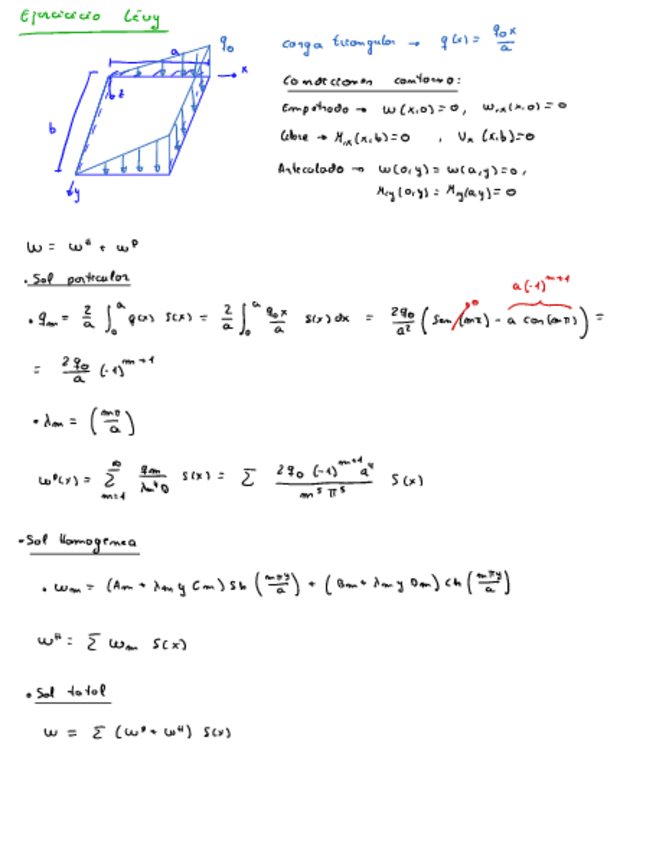 Ejercicio Lévy
q₀
a
x
z
b
y
carga triangular → q(x) = q₀x/a
Condiciones contorno:
Empotrado → w(x,0)=0, w,x(x,0)=0
Libre → Mx(x,b)=0 , Vx (x,b)=0
Articulado → w(0,y)=w(a,y)=0,
My(0,y)=My(a,y)=0
w = wᴴ + wᵖ
· Sol particular
a(-1)^(m+1)
· qm = 2/a ∫₀ᵃ q(x) S(x) = 2/a ∫₀ᵃ q₀x/a S(x)dx = 2q₀/a² (sen(mπ) - a cos(mπ)) =
0
= 2q₀/a (-1)^(m+1)
· λm = (mπ/a)
wᵖ(x) = Σ_(m=1)^∞ qm/λm⁴D S(x) = Σ 2q₀(-1)^(m+1)a⁴/m⁵π⁵ S(x)
- Sol Homogénea
· wm = (Am + λm y Cm) Sh (mπy/a) + (Bm + λm y Dm) Ch (mπy/a)
wᴴ = Σ wm S(x)
· Sol total
w = Σ (wᵖ + wᴴ) S(x)